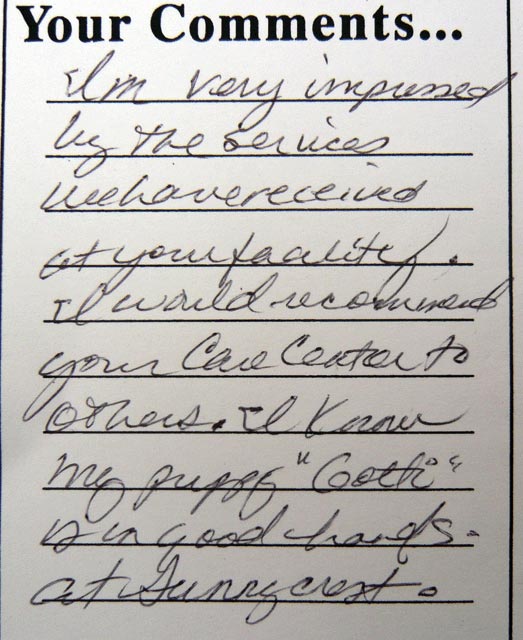 Your Comments...
I'm very impressed
by the services
we have received
at your facility.
I would recommend
your Care Center to
others. I know
my puppy "Gotti"
is in good hands
at Sunnycrest.